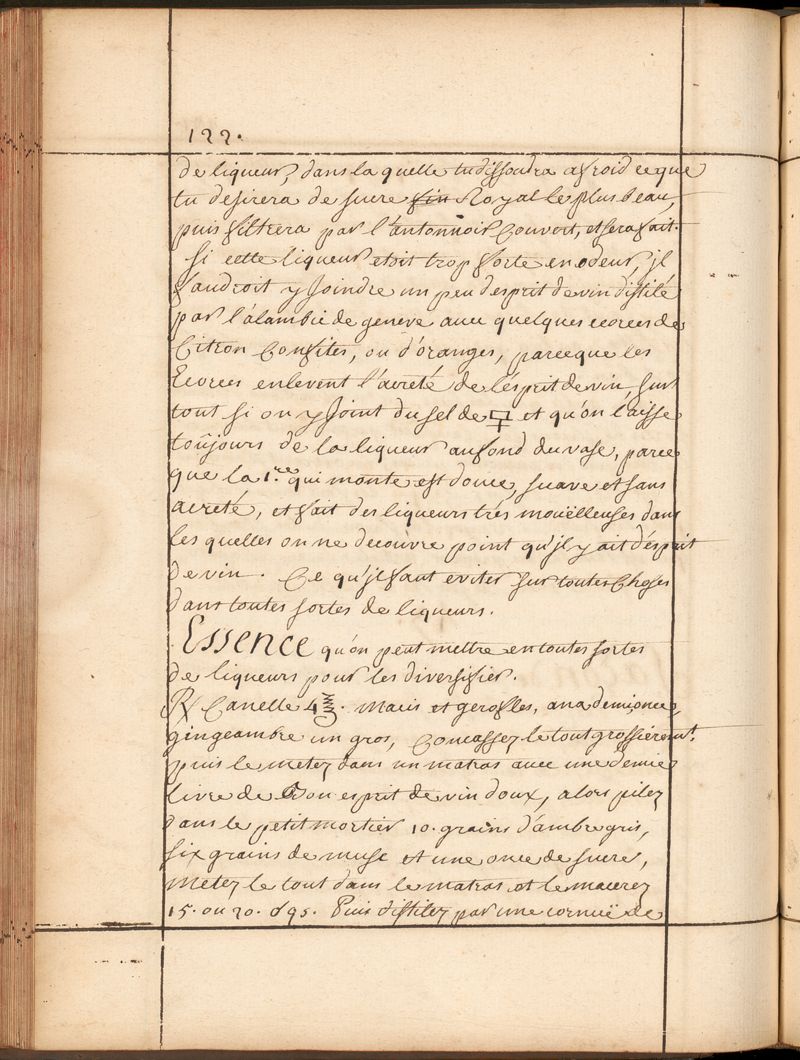 122.
de liqueur, dans la quelle tu dissoudra a froid ce que
tu desirera de sucre fin Royal le plus beau,
puis filtrera par l'antonnoir Couvert, et sera fait.
Si cette liqueur etoit trop forte en odeur, jl
faudroit y Joindre un peu d'esprit de vin distilé
par l'alambic de geneve avec quelques ecorces de
Citron Confites, ou d'oranges, parceque les
Ecorces enlevent l'acreté de l'ésprit de vin, sur
tout si on y Joint du sel de et qu'on l'aisse
toûjours de la liqueur au fond du vase, parce
que la 1.ere qui monte est douce, suave et sans
acreté, et fait des liqueurs très mouëlleuses dans
les quelles on ne decouvre point qu'jl y ait d'ésprit
de vin. Ce qu'jl faut eviter sur toutes Choses
dans toutes sortes de liqueurs.
Essence qu'on peut mettre en toutes sortes
de liqueurs pour les diversifier.
℞ Canelle 4℥. Macis et gerofles, ana demi once,
gingeambre un gros, Concassez le tout grossièremt.
puis le metez dans un matras avec une demie
livre de Bon esprit de vin doux, alors pilez
dans le petit mortier 10. grains d'ambre gris,
six grains de musc et une once de sucre,
Metez le tout dans le matras et le macerez
15. ou 20. Puis distilez par une cornuë de